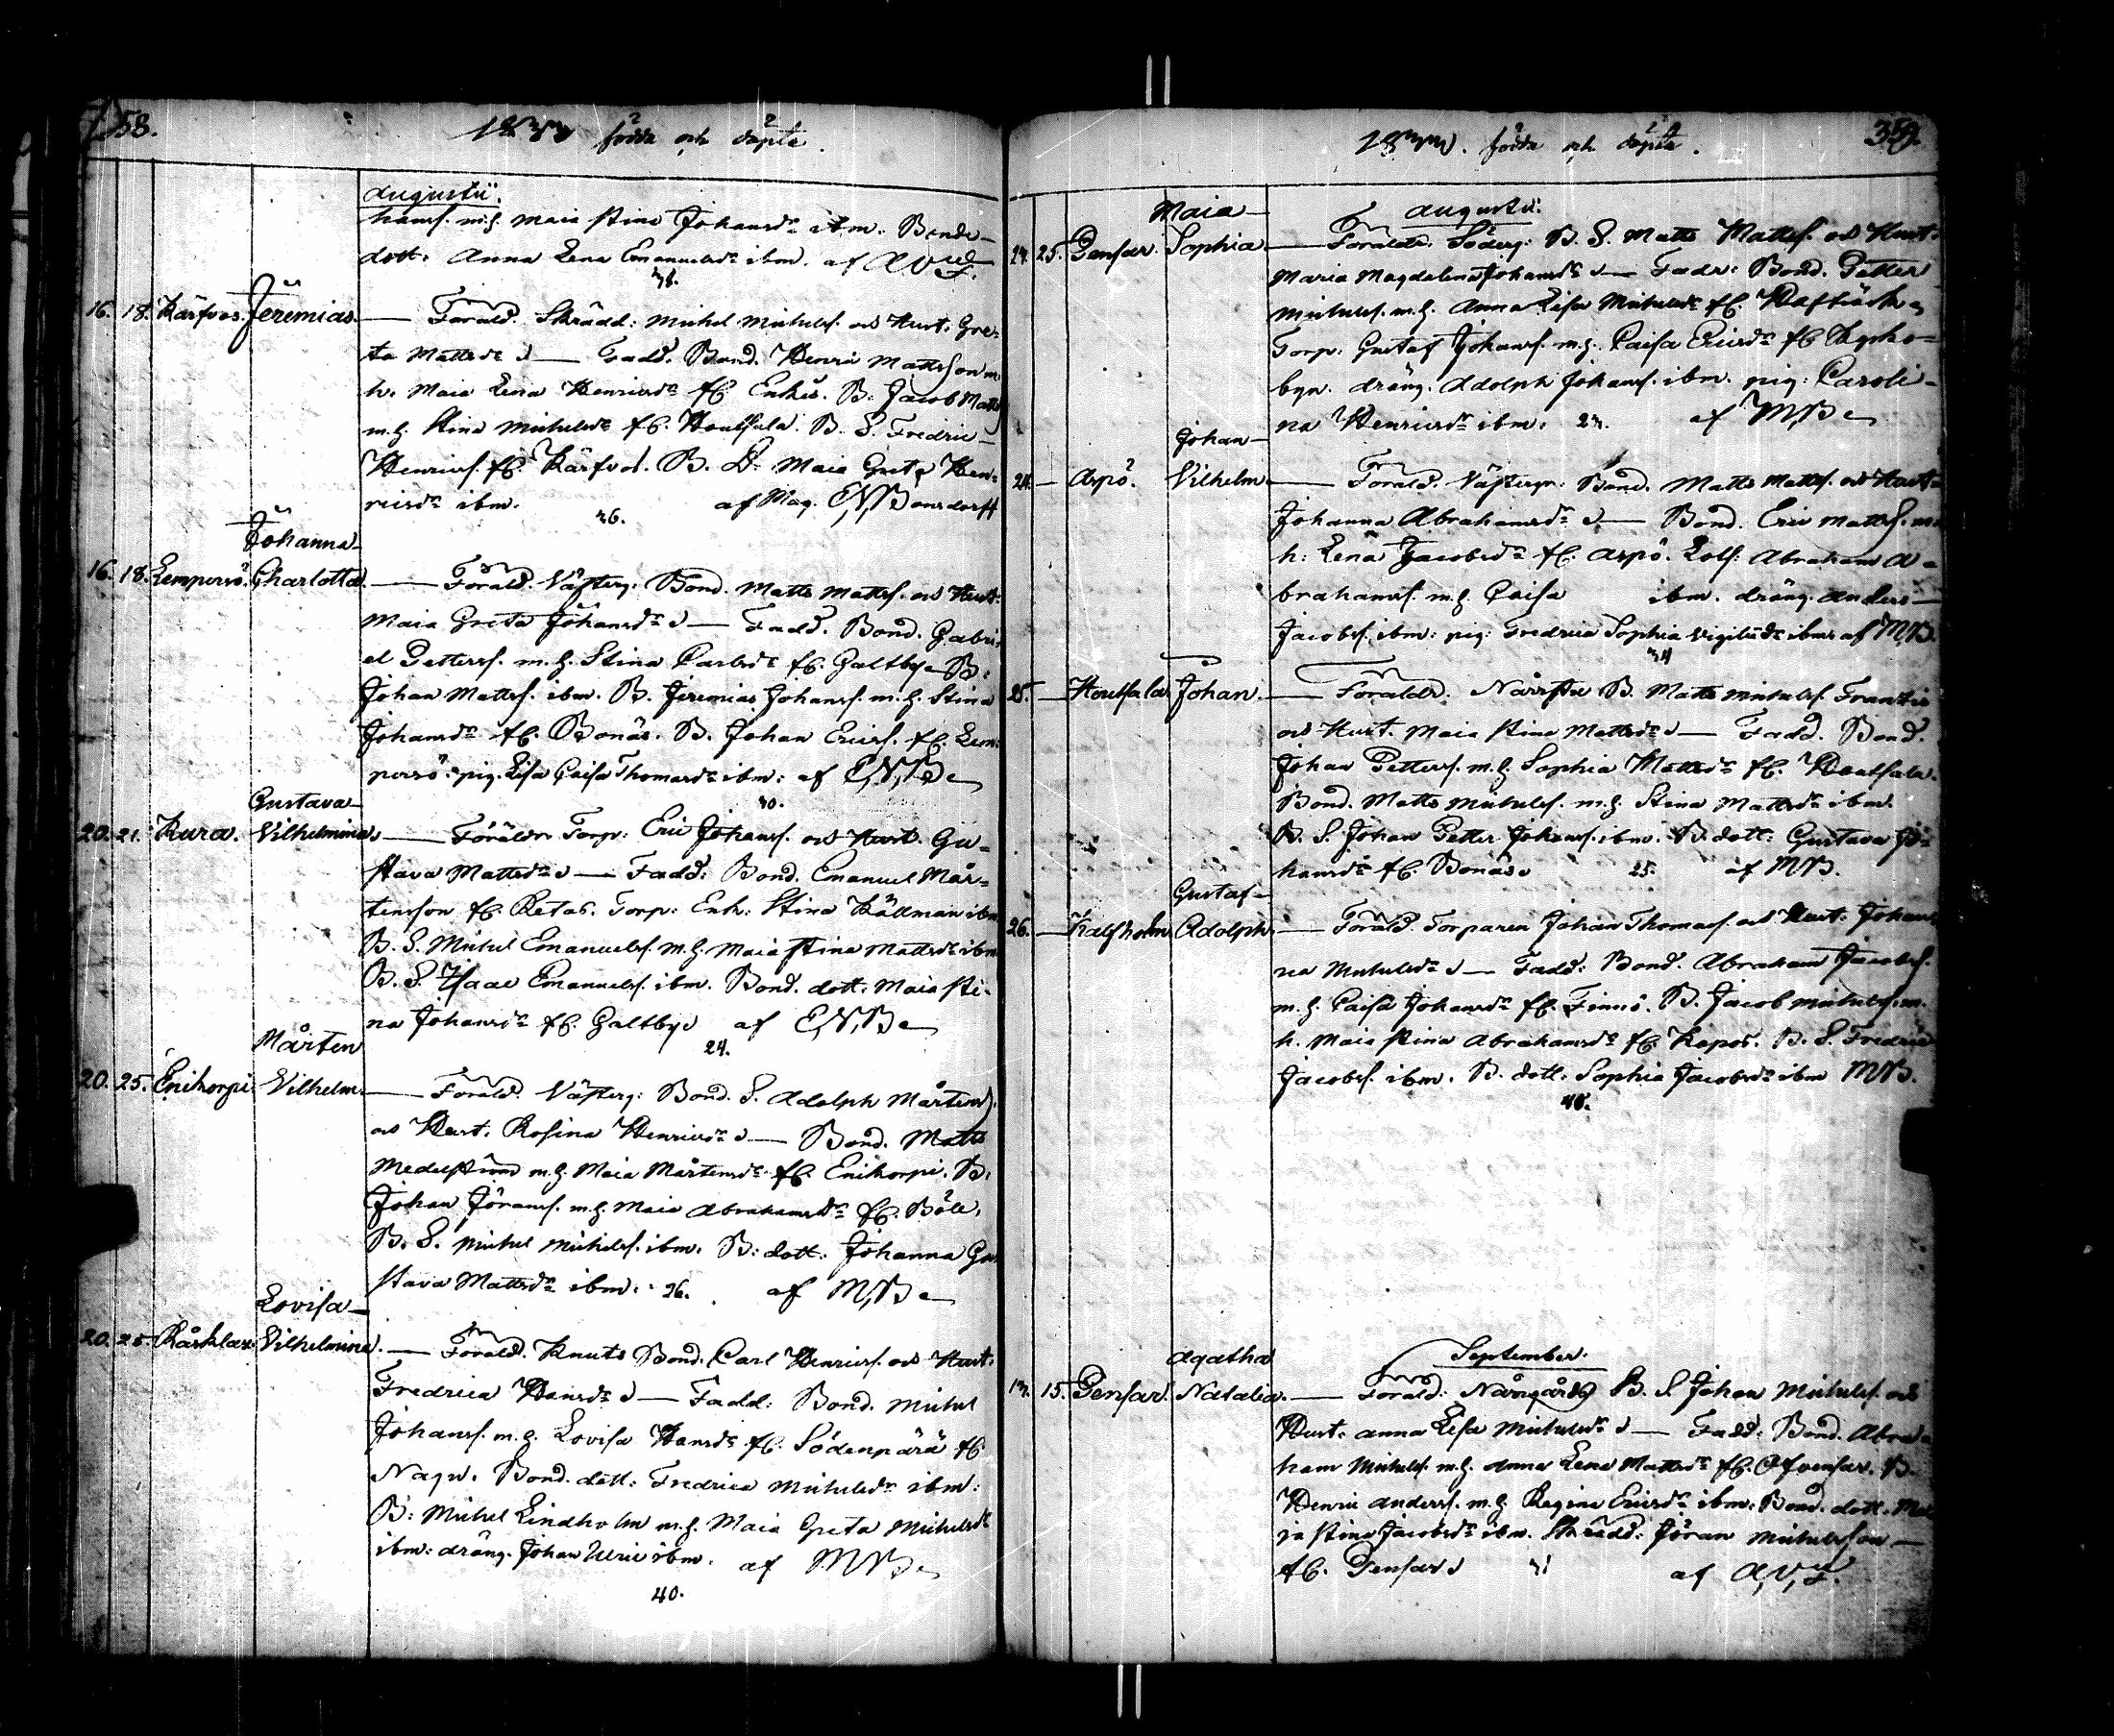 358.
1833 födde och döpte.
Augustii.
hanss. m.h. Maia Stina Johansdr ibm. Bonde-
dott. Anna Lena Emanuelsdr ibm. af
38.
16. 18. Kärfvos. Jeremias. — Föräld. Skrädd: Michel Michelss. och Hust. Gre-
ta Mattsdr — Fadd. Bond. Henric Mattsson m.
h. Maia Lena Henricsdr fr. Enkis. B. Jacob Matts
m.h. Stina Michelsdr fr. Houtsala. B. S. Fredric
Henricss. fr. Kärfvos. B. Dr Maia Greta Hen-
ricsdr ibm. af Mag. E.N. Bonsdorff
36.
Johanna-
16. 18. Lempersö. Charlotta. — Föräld. Västerg: Bond. Matts Mattss. och Hust.
Maia Greta Johansdr — Fadd. Bond. Gabri-
el Petterss. m.h. Stina Carlsdr fr. Galtby. B.
Johan Mattss. ibm. B. Jeremias Johanss. m.h. Stina
Johansdr fr. Bonäs. B. Johan Ericss. fr. Lem-
persö. pig. Lisa Caisa Thomasdr ibm: af E.N.B.
30.
Gustava-
20. 21. Kura. Vilhelmina. — Föräldr. Torp: Eric Johanss. och Hust. Gu-
stava Mattsdr — Fadd: Bond. Emanuel Mår-
tensson fr. Retas. Torp: Enk: Stina Källman ibm
B. S. Michel Emanuelss. m.h. Maia Stina Mattsdr ibm
B. S. Isaac Emanuelss. ibm. Bond. dott. Maia Sti-
na Johansdr fr. Galtby af E.N.B.
24.
Mårten
20. 25. Enikorpi Vilhelm. — Föräld. Västerg: Bond. S. Adolph Mårtenss.
och Hust. Rosina Henricsdr — Bond. Matts
Medelström m.h. Maia Mårtensdr fr. Enikorpi. B.
Johan Jöranss. m.h. Maia Abrahamsdr fr. Böle.
B. S. Michel Michelss. ibm. B: dott. Johanna Gu
stava Mattsdr ibm. 36. af M.B.
Lovisa-
20. 25. Kårklax. Vilhelmina. — Föräld. Knuts Bond. Carl Henricss. och Hust.
Fredrica Hansdr — Fadd: Bond. Michel
Johanss. m.h. Lovisa Hansdr fr. Södenpärä fr.
Nagu. Bond. dott: Fredrica Michelsdr ibm:
B: Michel Lindholm m.h. Maia Greta Michelsdr
ibm: dräng. Johan Ulric ibm. af M.B.
40.
1833. födde och döpte.
359.
Augustii.
Maia-
24. 25. Pensar. Sophia — Föräldr. Söderg: B. S. Matts Mattss. och Hust.
Maria Magdalena Johansdr — Fadr: Bond. Petter
Michelss. m.h. Anna Lisa Michelsdr fr.
Torp: Gustaf Johanss. m.h. Caisa Ericsdr fr. Kyrko-
byn. dräng. Adolph Johanss. ibm. pig: Caroli-
na Henricsdr ibm. 23. af M.B.
Johan-
24. — Aspö. Vilhelm. — Föräld. Västergn: Bond. Matts Mattss. och Hust.
Johanna Abrahamsdr — Bond. Eric Mattss. m.
h: Lena Jacobsdr fr. Aspö. Lots: Abraham A-
brahamss. m.h. Caisa ibm. dräng. Anders
Jacobss. ibm: pig: Fredrica Sophia ibm: af M.B.
34
25. — Houtsala. Johan. — Föräldr. B. Matts Michelss.
och Hust. Maia Stina Mattsdr — Fadd. Bond.
Johan Petterss. m.h. Sophia Mattsdr fr. Houtsala.
Bond. Matts Michelss. m.h. Stina Mattsdr ibm.
B. S. Johan Petter Johanss. ibm. B. dott: Gustava Jo-
hansdr fr. Bonäs. 25. af M.B.
Gustaf-
26. — Kalfholm. Adolph. — Föräld. Torparen Johan Thomass. och Hust. Johan
na Michelsdr — Fadd: Bond. Abraham Jacobss.
m.h. Caisa Johansdr fr. Finnö. B. Jacob Michelss. m.
h. Maia Stina Abrahamsdr fr. Kapos. B. S. Fredric
Jacobss. ibm. B. dott: Sophia Jacobsdr ibm M.B.
40.
September.
Agatha
13. 15. Pensar. Natalia. — Föräld: Norrgårds B. S. Johan Michelss. och
Hust. Anna Lisa Michelsdr — Fadd: Bond. Abra-
ham Michelss. m.h. Anna Lena Mattsdr fr. Öfvensar. B.
Henric Anderss. m.h. Regina Ericsdr ibm: Bond. dott. Ma
ja Stina Jacobsdr ibm. Skrädd: Jöran Michelsson
fr. Pensar 31 af